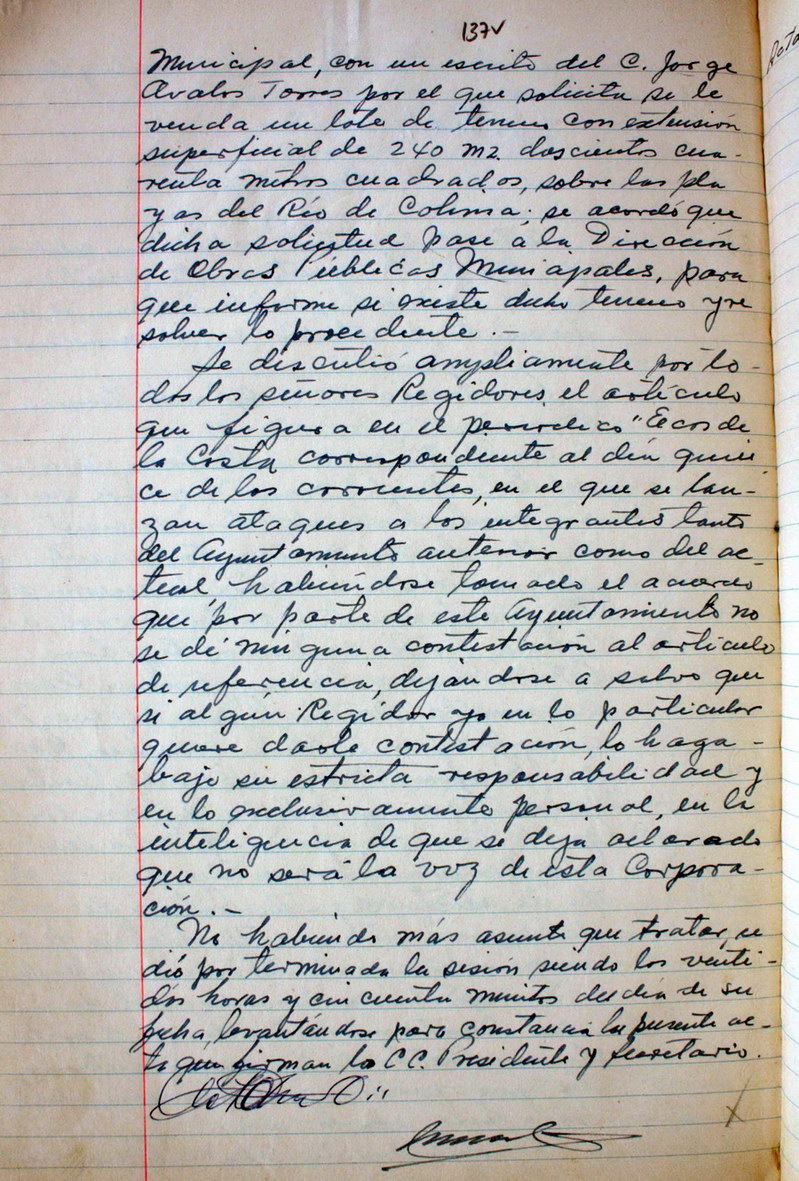 137v
Acta
Municipal, con un escrito del C. Jorge
Avalos Torres por el que solicita se le
venda un lote de terreno con extensión
superficial de 240 m2. doscientos cua-
renta metros cuadrados, sobre las pla
yas del Río de Colima; se acordó que
dicha solicitud pase a la Dirección
de Obras Públicas Municipales, para
que informe si existe dicho terreno y re
solver lo procedente.-
Se discutió ampliamente por to-
dos los señores Regidores, el artículo
que figura en el periodico "Ecos de
la Costa correspondiente al día quin
ce de los corrientes, en el que se lan-
zan ataques a los integrantes tanto
del Ayuntamiento anterior como del ac-
tual, habiéndose tomado el acuerdo
que por parte de este Ayuntamiento no
se dé ninguna contestación al artículo
de referencia, dejándose a salvo que
si algún Regidor ya en lo particular
quiere darle contestación, lo haga-
bajo su estricta responsabilidad y
en lo exclusivamente personal, en la
inteligencia de que se deja aclarado
que no será la voz de esta Corpora-
ción.-
No habiendo más asunto que tratar, se
dió por terminada la sesión siendo las venti-
dós horas y cincuenta minutos del día de su
fecha, levantándose para constancia la presente ac-
ta que firman los CC. Presidente y Secretario.